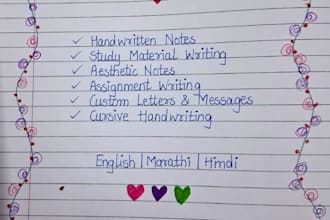 ✓ Handwritten Notes
✓ Study Material Writing
✓ Aesthetic Notes
✓ Assignment Writing
✓ Custom Letters & Messages
✓ Cursive Handwriting
English | Marathi | Hindi